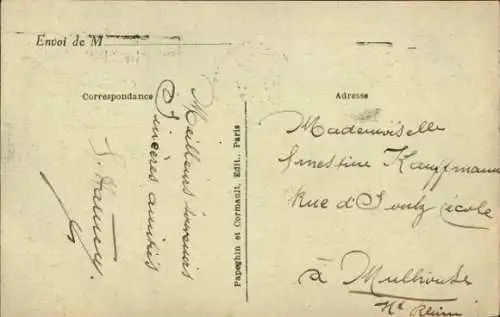 Envoi de M
Correspondance
Adresse
Meilleurs souvenirs
Sincères amitiés
Papeghin et Cormault, Edit., Paris
Mademoiselle
Ernestine Kauffmann
Rue d'Soultz (école
à Mulhouse
Ht Rhin